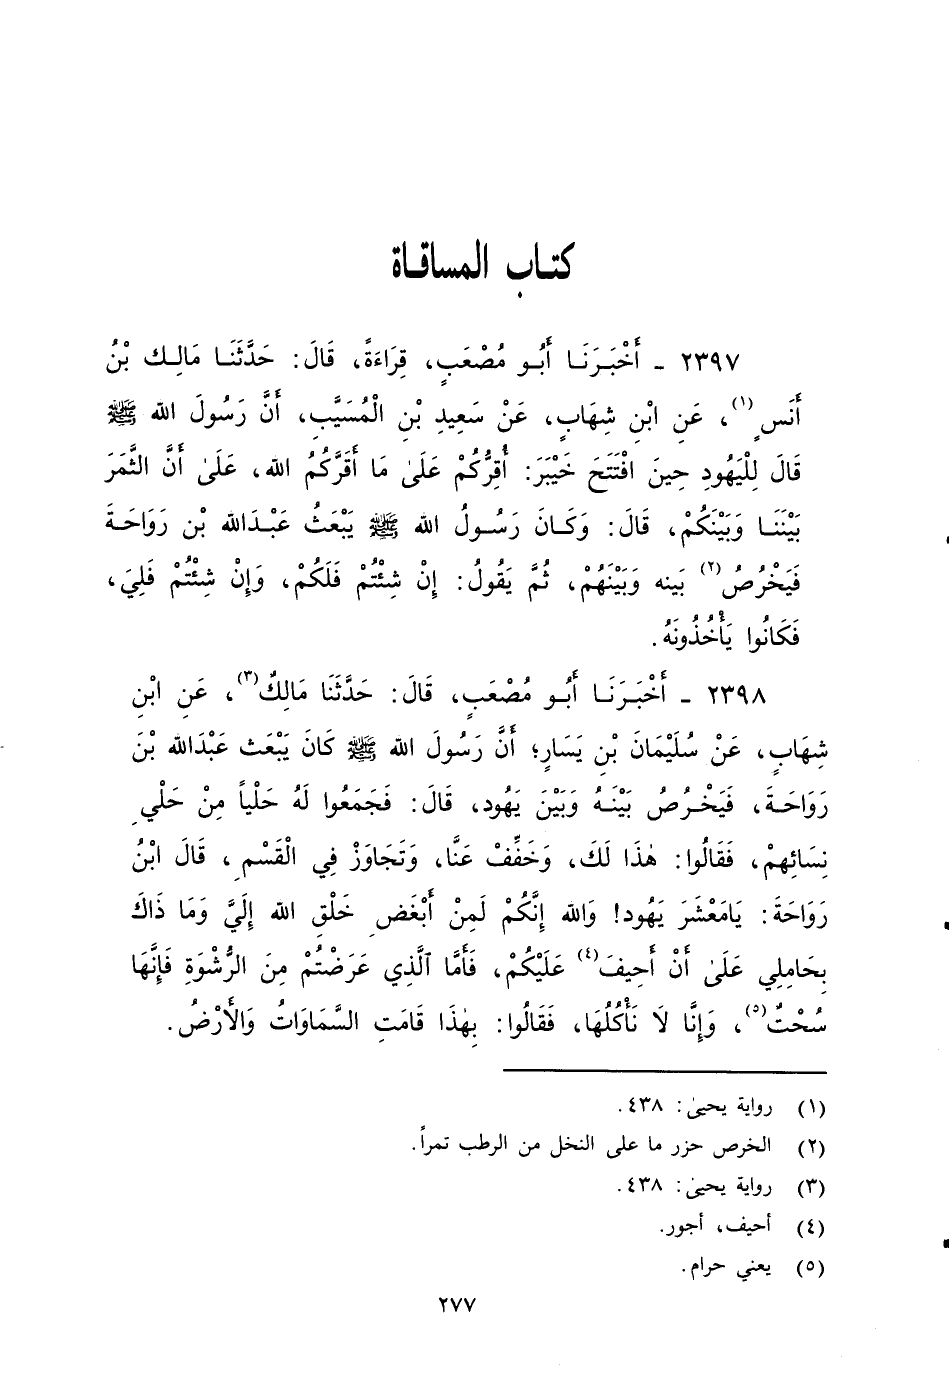 كتاب المساقاة
٢٣٩٧ ـ أَخْبَرَنَا أَبُو مُصْعَبٍ، قِرَاءَةً، قَالَ: حَدَّثَنَا مَالِك بْنُ
أَنَسٍ(١)، عَنِ ابْنِ شِهَابٍ، عَنْ سَعِيدِ بْنِ الْمُسَيَّبِ، أَنَّ رَسُولَ الله ﷺ
قَالَ لِلْيَهُودِ حِينَ افْتَتَحَ خَيْبَرَ: أُقِرُّكُمْ عَلَىٰ مَا أَقَرَّكُمُ الله، عَلَىٰ أَنَّ الثَّمَرَ
بَيْنَنَا وَبَيْنَكُمْ، قَالَ: وَكَانَ رَسُولُ الله ﷺ يَبْعَثُ عَبْدَالله بْن رَوَاحَةَ
فَيَخْرُصُ(٢) بَينه وَبَيْنَهُمْ، ثُمَّ يَقُولُ: إِنْ شِئْتُمْ فَلَكُمْ، وَإِنْ شِئْتُمْ فَلِيَ،
فَكَانُوا يَأْخُذُونَهُ.
٢٣٩٨ ـ أَخْبَرَنَا أَبُو مُصْعَبٍ، قَالَ: حَدَّثَنَا مَالِكٌ(٣)، عَنِ ابْنِ
شِهَابٍ، عَنْ سُلَيْمَانَ بْنِ يَسَارٍ؛ أَنَّ رَسُولَ الله ﷺ كَانَ يَبْعَث عَبْدَالله بْنَ
رَوَاحَةَ، فَيَخْرُصُ بَيْنَهُ وَبَيْنَ يَهُود، قَالَ: فَجَمَعُوا لَهُ حَلْياً مِنْ حَلْيِ
نِسَائِهِمْ، فَقَالُوا: هٰذَا لَكَ، وَخَفِّفْ عَنَّا، وَتَجَاوَزْ فِي الْقَسْمِ، قَالَ ابْنُ
رَوَاحَةَ: يَامَعْشَرَ يَهُود! وَالله إِنَّكُمْ لَمِنْ أَبْغَضِ خَلْقِ الله إِلَيَّ وَمَا ذَاكَ
بِحَامِلِي عَلَىٰ أَنْ أَحِيفَ(٤) عَلَيْكُمْ، فَأَمَّا ٱلَّذِي عَرَضْتُمْ مِنَ الرُّشْوَةِ فَإِنَّهَا
سُحْتٌ(٥)، وَإِنَّا لَا نَأْكُلُهَا، فَقَالُوا: بِهٰذَا قَامَتِ السَّمَاوَاتُ وَالْأَرْضُ.
(١) رواية يحيىٰ: ٤٣٨.
(٢) الخرص حزر ما على النخل من الرطب تمراً.
(٣) رواية يحيىٰ: ٤٣٨.
(٤) أحيف، أجور.
(٥) يعني حرام.
٢٧٧